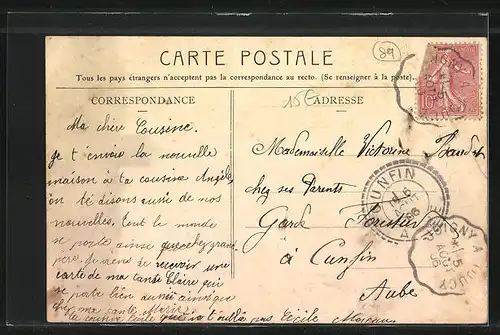 89
CARTE POSTALE
Tous les pays étrangers n'acceptent pas la correspondance au recto. (Se renseigner à la poste).
CORRESPONDANCE
15€
ADRESSE
Ma chère Cousine.
je t'envoie la nouvelle
maison à ta cousine Angèle
on té disons aussi de nos
nouvelles, tout le monde
se porte ainsi que chez grand
père. Je viens de recevoir une
carte de ma tante Claire qui
se porte bien aussi ainsi que
chez ma tante Marie.
ta cousine qui ne t'oublie pas Cécile
Mademoiselle Victorine
chez ses Parents
Garde Forestier
à Cunfin
Aube
10
CUNFIN
6
06
GNY A
5
AOUT
06